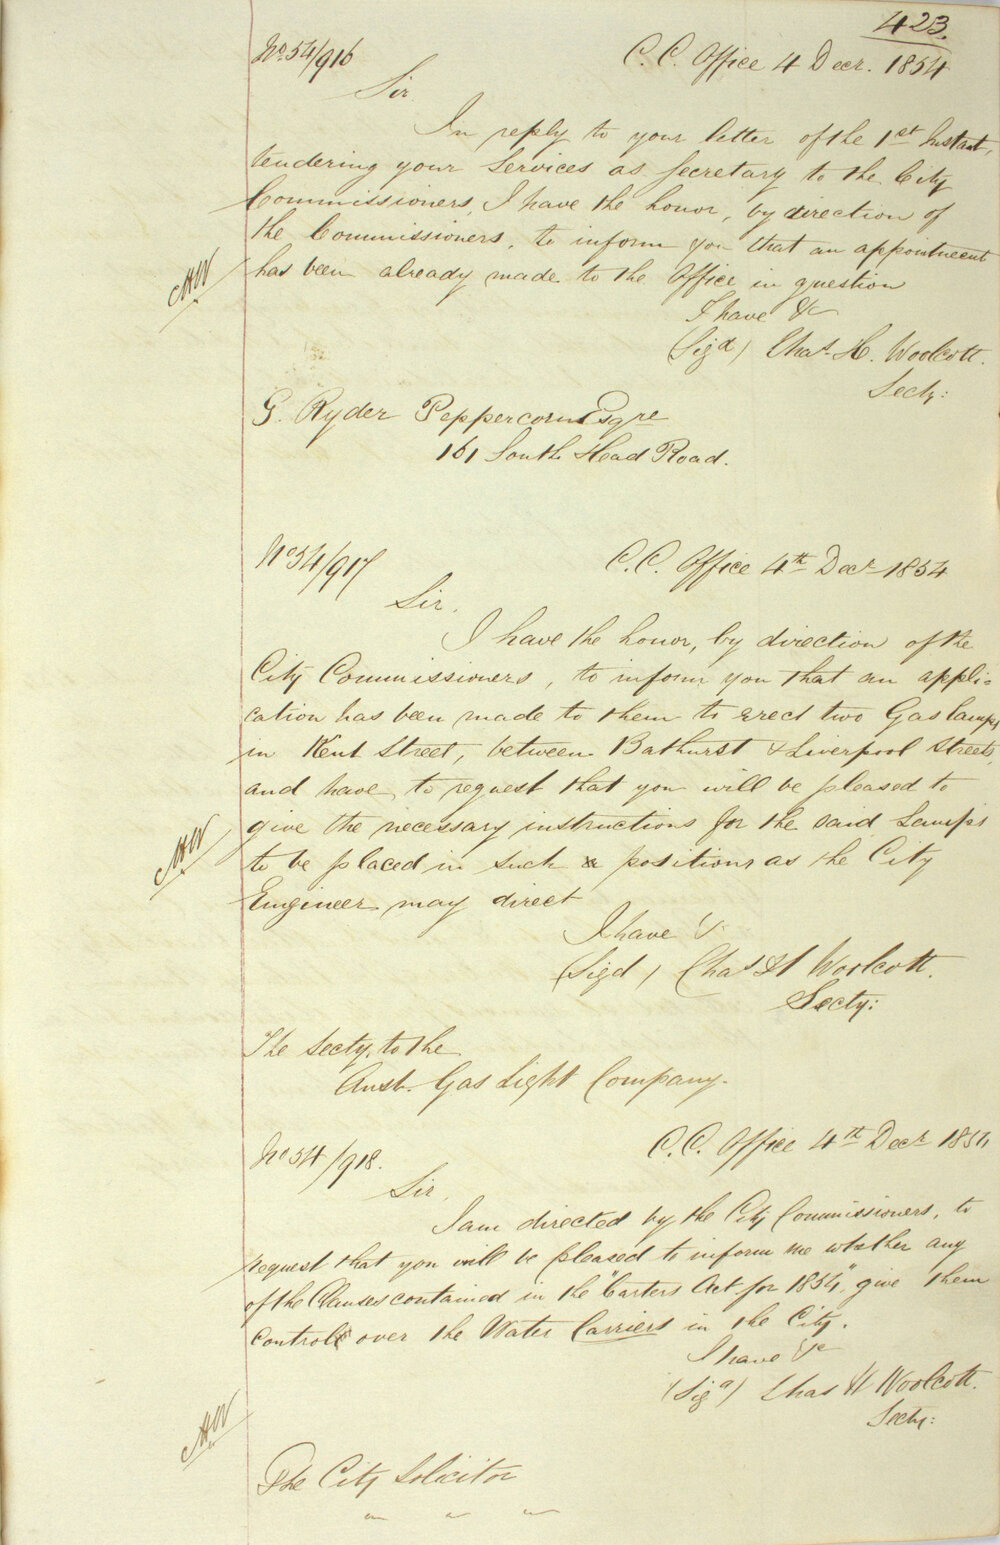 423.
No. 54/916
C. C. Office 4 Decr. 1854
Sir
In reply to your letter of the 1st Instant,
tendering your Services as Secretary to the City
Commissioners, I have the honor, by direction of
the Commissioners, to inform you that an appointment
has been already made to the Office in question
I have &c
(Sigd) Chas. H. Woolcott.
Secty:
G. Ryder Peppercorn Esqre
161 South Head Road.
No 54/917
C. C. Office 4th Decr 1854
Sir,
I have the honor, by direction of the
City Commissioners, to inform you that an appli-
cation has been made to them to erect two Gas lamps
in Kent Street, between Bathurst & Liverpool Streets,
and have to request that you will be pleased to
give the necessary instructions for the said Lamps
to be placed in such positions as the City
Engineer may direct
I have &
(Sigd) Chas H Woolcott.
Secty:
The Secty. to the
Aust. Gas Light Company.
No 54/918.
C. C. Office 4th Decr 1854
Sir,
I am directed by the City Commissioners, to
request that you will be pleased to inform me whether any
of the Clauses contained in the "Carters Act for 1854", give them
control over the Water Carriers in the City.
I have &c
(Sigd) Chas H Woolcott.
Secty:
The City Solicitor